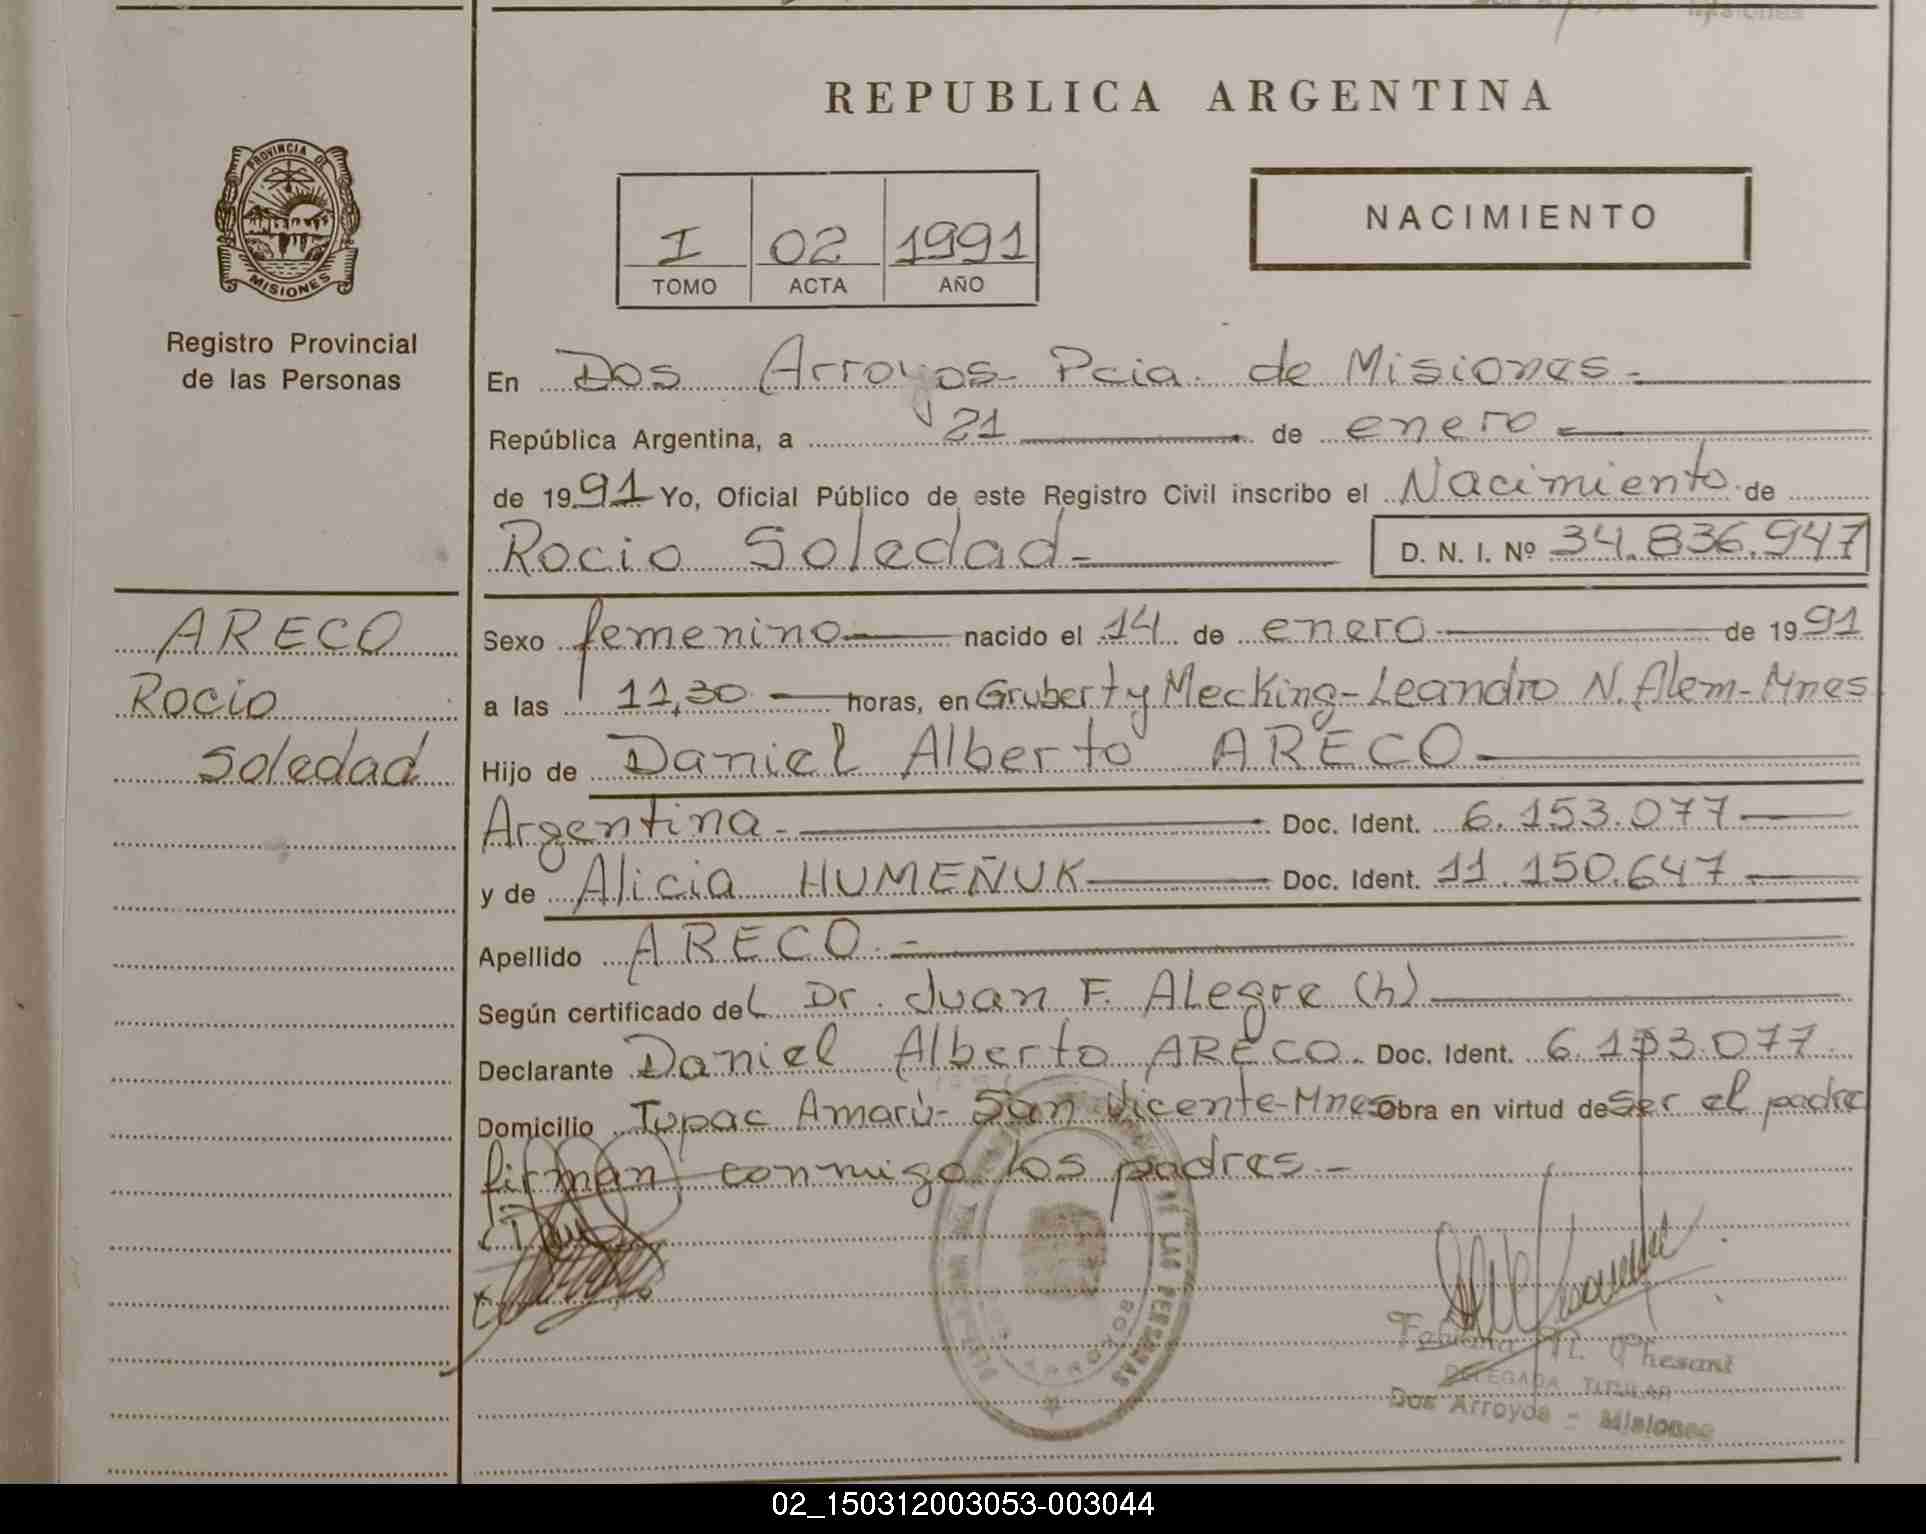 REPUBLICA ARGENTINA
PROVINCIA DE
MISIONES
Registro Provincial
de las Personas
I 02 1991
TOMO ACTA AÑO
NACIMIENTO
En Dos Arroyos - Pcia. de Misiones.-
República Argentina, a 21 de enero
de 1991 Yo, Oficial Público de este Registro Civil inscribo el Nacimiento de
Rocio Soledad- D. N. I. Nº 34.836.947
ARECO
Rocio
Soledad
Sexo femenino nacido el 14 de enero de 1991
a las 11,30 horas, en Grubert y Mecking-Leandro N. Alem-Mnes
Hijo de Daniel Alberto ARECO
Argentina.- Doc. Ident. 6.153.077
y de Alicia HUMEÑUK Doc. Ident. 11.150.647
Apellido ARECO.-
Según certificado del Dr. Juan F. Alegre (h)
Declarante Daniel Alberto ARECO. Doc. Ident. 6.153.077
Domicilio Tupac Amarú- San Vicente-Mnes Obra en virtud de ser el padre
firman conmigo los padres.-
DE LAS PERSONAS
DOS ARROYOS
Fabiana N.
DELEGADA TITULAR
Dos Arroyos - Misiones
02_150312003053-003044